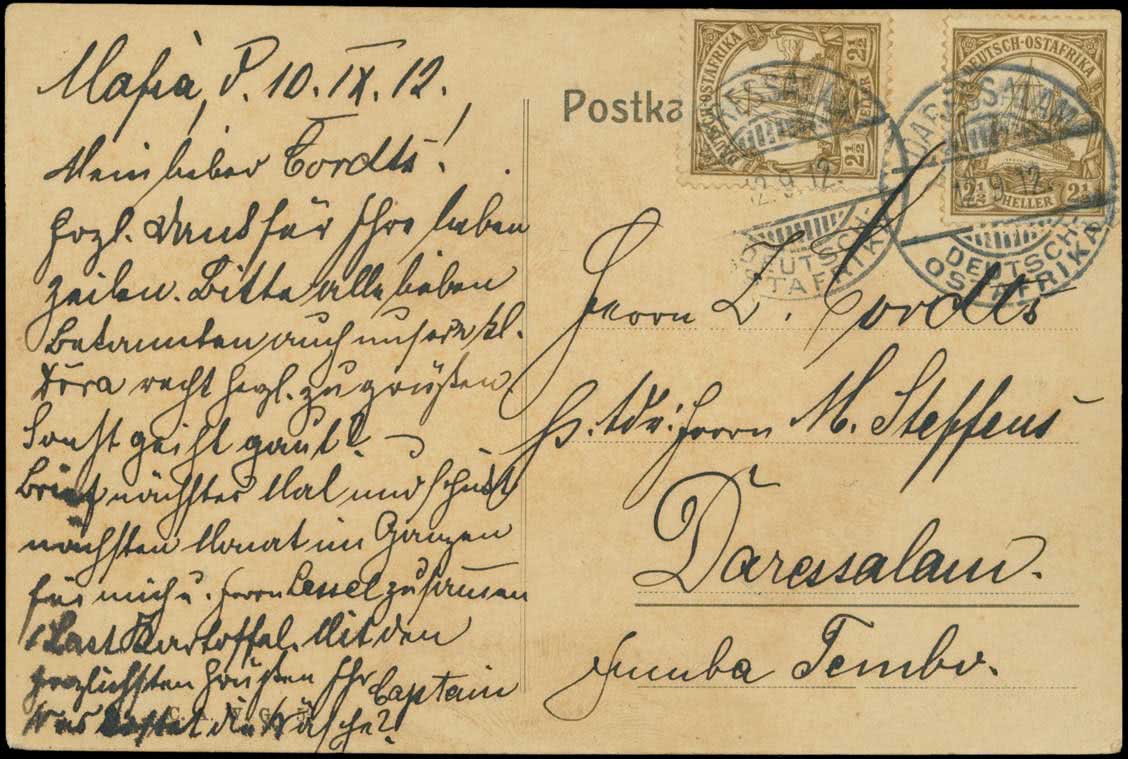 Mafia, d. 10. IX. 12.
Mein lieber Cordts!
Herzl. Dank für Ihre lieben
Zeilen. Bitte alle lieben
Bekannten auch unsere kl.
Dora recht herzl. zu grüßen
Sonst geiht gaut!
Brief nächstes Mal und schickt
nächsten Monat im Ganzen
für mich u. Herrn Lessel zusammen
1 Last Kartoffel. Mit den
herzlichsten Grüßen Ihr Captain
Was kostet die Wäsche?
Postka
DEUTSCH-OSTAFRIKA
2½ HELLER 2½
DEUTSCH-OSTAFRIKA
2½ HELLER 2½
DARESSALAM
12.9.12.
DEUTSCH-
OSTAFRIKA
DARESSALAM
12.9.12.
DEUTSCH-
OSTAFRIKA
Herrn Z. Cordts
p. Adr: Herrn M. Steffens
Daressalam.
Jumba Tembo.